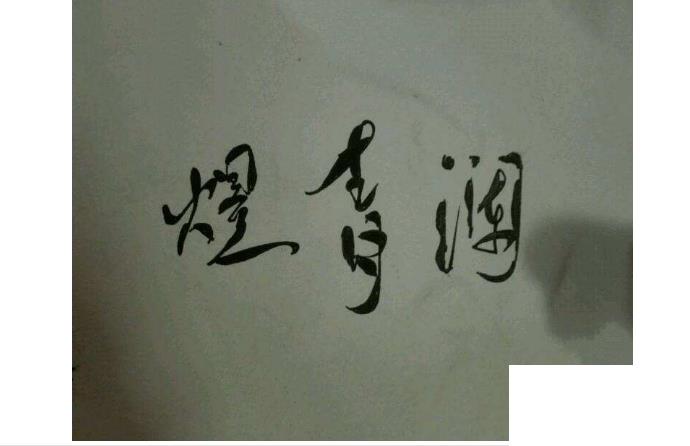 煜青澜